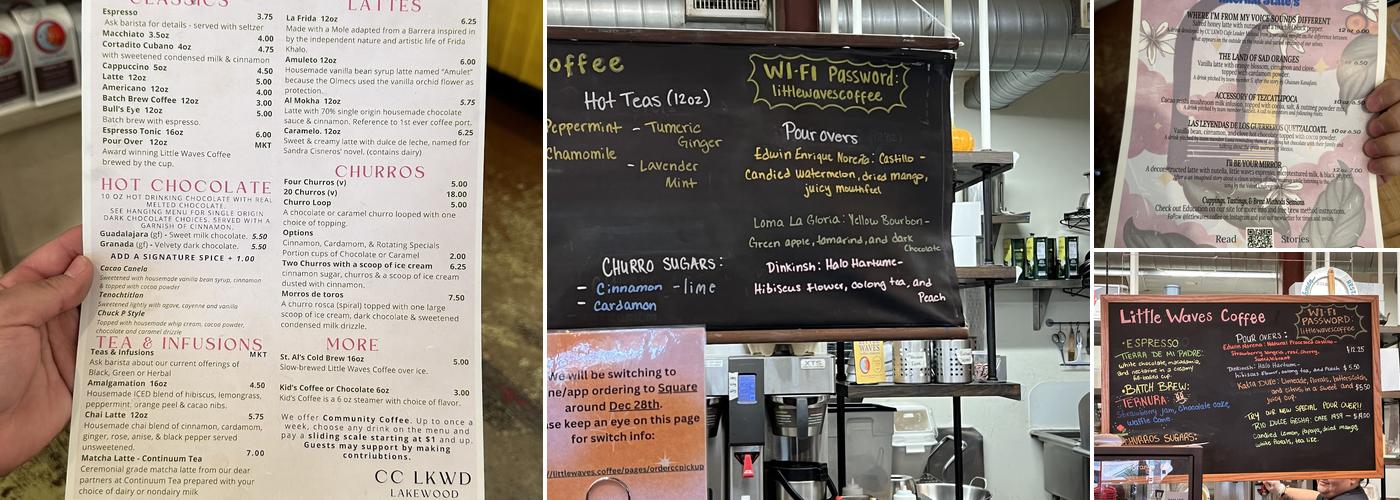 CLASSICS
Espresso 3.75
Ask barista for details - served with seltzer
Macchiato 3.5oz 4.00
Cortadito Cubano 4oz 4.75
with sweetened condensed milk & cinnamon
Cappuccino 5oz 4.50
Latte 12oz 5.00
Americano 12oz 4.00
Batch Brew Coffee 12oz 3.00
Bull's Eye 12oz 5.00
Batch brew with espresso.
Espresso Tonic 16oz 6.00
Pour Over 12oz MKT
Award winning Little Waves Coffee
brewed by the cup.
HOT CHOCOLATE
10 OZ HOT DRINKING CHOCOLATE WITH REAL
MELTED CHOCOLATE.
SEE HANGING MENU FOR SINGLE ORIGIN
DARK CHOCOLATE CHOICES. SERVED WITH A
GARNISH OF CINNAMON.
Guadalajara (gf) - Sweet milk chocolate. 5.50
Granada (gf) - Velvety dark chocolate. 5.50
ADD A SIGNATURE SPICE + 1.00
Cacao Canela
Sweetened with housemade vanilla bean syrup, cinnamon
& topped with cocoa powder
Tenochtitlan
Sweetened lightly with agave, cayenne and vanilla
Chuck P Style
Topped with housemade whip cream, cocoa powder,
chocolate and caramel drizzle
TEA & INFUSIONS
Teas & Infusions MKT
Ask barista about our current offerings of
Black, Green or Herbal
Amalgamation 16oz 4.50
Housemade ICED blend of hibiscus, lemongrass,
peppermint, orange peel & cacao nibs.
Chai Latte 12oz 5.75
Housemade chai blend of cinnamon, cardamom,
ginger, rose, anise, & black pepper served
unsweetened.
Matcha Latte - Continuum Tea 7.00
Ceremonial grade matcha latte from our dear
partners at Continuum Tea prepared with your
choice of dairy or nondairy milk
LATTES
La Frida 12oz 6.25
Made with a Mole adapted from a Barrera inspired in
by the independent nature and artistic life of Frida
Khalo.
Amuleto 12oz 6.00
Housemade vanilla bean syrup latte named "Amulet"
because the Olmecs used the vanilla orchid flower as
protection...
Al Mokha 12oz 5.75
Latte with 70% single origin housemade chocolate
sauce & cinnamon. Reference to 1st ever coffee port.
Caramelo. 12oz 6.25
Sweet & creamy latte with dulce de leche, named for
Sandra Cisneros' novel. (contains dairy)
CHURROS
Four Churros (v) 5.00
20 Churros (v) 18.00
Churro Loop 5.00
A chocolate or caramel churro looped with one
choice of topping.
Options
Cinnamon, Cardamom, & Rotating Specials
Portion cups of Chocolate or Caramel 2.00
Two Churros with a scoop of ice cream 6.25
cinnamon sugar, churros & a scoop of ice cream
dusted with cinnamon.
Morros de toros 7.50
A churro rosca (spiral) topped with one large
scoop of ice cream, dark chocolate & sweetened
condensed milk drizzle.
MORE
St. Al's Cold Brew 16oz 5.00
Slow-brewed Little Waves Coffee over ice.
Kid's Coffee or Chocolate 6oz 3.00
Kid's Coffee is a 6 oz steamer with choice of flavor.
We offer Community Coffee. Up to once a
week, choose any drink on the menu and
pay a sliding scale starting at $1 and up.
Guests may support by making
contriubtions.
CC LKWD
LAKEWOOD
offee
Hot Teas (12oz)
Peppermint - Tumeric
Ginger
Chamomile
- Lavender
Mint
CHURRO SUGARS:
- Cinnamon - lime
- Cardamon
WI-FI Password:
littlewavescoffee
Pour overs
Edwin Enrique Noreña: Castillo -
Candied watermelon, dried mango,
juicy mouthfeel
Loma La Gloria: Yellow Bourbon -
Green apple, tamarind, and dark
Chocolate
Dinkinsh: Halo Hartume-
Hibiscus flower, oolong tea, and
Peach
We will be switching to
ne/app ordering to Square
around Dec 28th.
se keep an eye on this page
for switch info:
//littlewaves.coffee/pages/orderccpickup
XTS
WAVES
WHERE I'M FROM MY VOICE SOUNDS DIFFERENT
12 oz 6.00
THE LAND OF SAD ORANGES
Vanilla latte with orange blossom, cinnamon and clove,
topped with cardamom powder.
ACCESSORY OF TEZCATLIPOCA
LAS LEYENDAS DE LOS GUERREROS QUETZALCOATL
Vanilla bean, cinnamon, and clove hot chocolate topped with cocoa powder.
I'LL BE YOUR MIRROR
12 oz 7.00
Cuppings, Tastings, & Brew Methods Sessions
Check out Education on our site for more info and free brew method instructions.
Follow @littlewavescoffee on Instagram and join our newsletter for times and merch.
Read Stories
Little Waves Coffee
WI-FI
PASSWORD:
littlewavescoffee
• ESPRESSO
TIERRA DE MI PADRE:
white chocolate, macadamia,
and nectarine in a creamy
full-bodied cup.
• BATCH BREW:
TERNURA:
Strawberry jam, chocolate cake,
waffle cone.
CHURROS SUGARS:
POUR OVERS:
Edwin Norena: Natural Processed Castillo -
Strawberry Sangria, rosé, cherry,
$12.25
Dinkinsh: Halo Hartume-
hibiscus flower, oolong tea, and Peach $5.50
Kaffa Duse: Limeade, florals, butterscotch,
and citrus in a sweet and $5.50
juicy cup.
TRY OUR NEW SPECIAL POUR OVER!!
RIO DULCE GESHA: CAFE 1959 - $11.00
Candied Lemon, papaya, dried mango,
white florals, tea like.